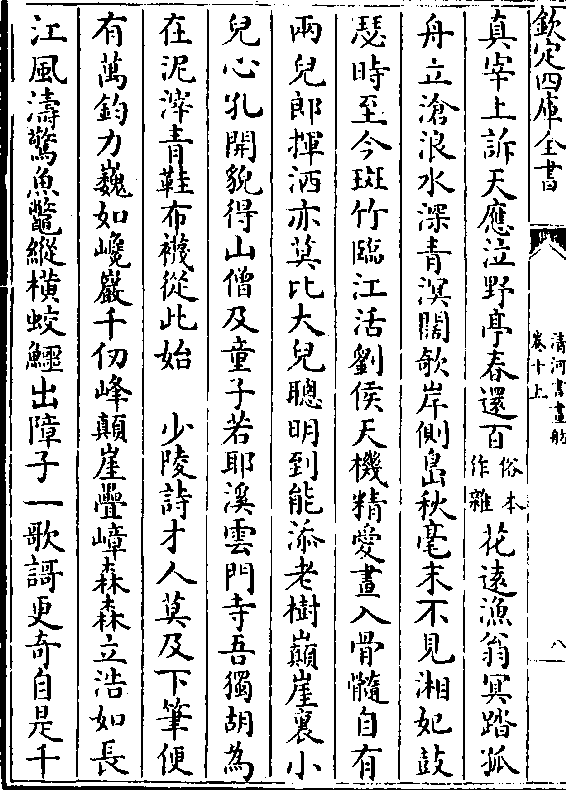 欽定四庫全書
清河書畫舫
卷十上
八
真宰上訴天應泣野亭春還百俗本作雜花遠漁翁冥踏孤
舟立滄浪水深青溟闊欹岸側島秋毫末不見湘妃鼓
瑟時至今斑竹臨江活劉侯天機精愛畫入骨髓自有
兩兒郎揮洒亦莫比大兒聰明到能添老樹巔崖裏小
兒心孔開貌得山僧及童子若耶溪雲門寺吾獨胡為
在泥滓青鞋布襪從此始　少陵詩才人莫及下筆便
有萬鈞力巍如巉巖千仞峰顛崖疊嶂森森立浩如長
江風濤驚魚鼈縱橫蛟鱷出障子一歌謌更奇自是千